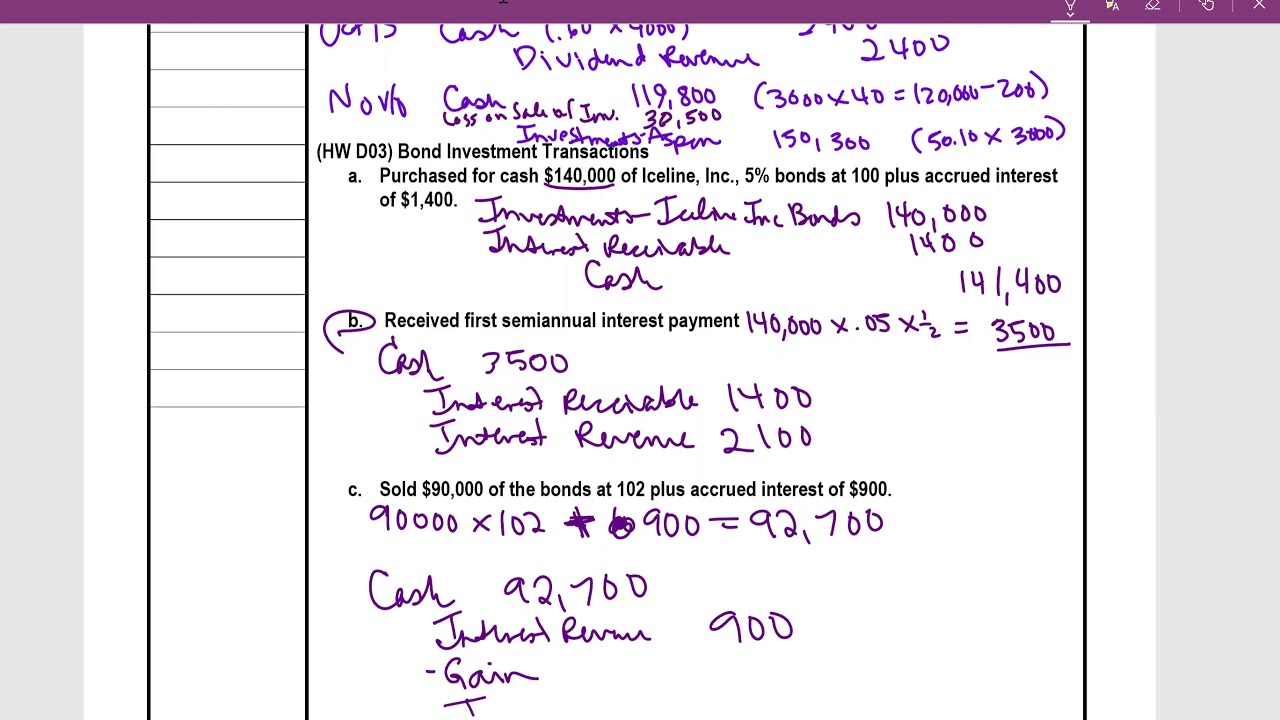 Oct 15 Cash (.60 x 4000) 2400
Dividend Revenue 2400
Nov 10 Cash 119,800 (3000 x 40 = 120,000 - 200)
Loss on Sale of Inv. 30,500
Investments-Aspen 150,300 (50.10 x 3000)
(HW D03) Bond Investment Transactions
a. Purchased for cash $140,000 of Iceline, Inc., 5% bonds at 100 plus accrued interest
of $1,400.
Investments- Iceline Inc Bonds 140,000
Interest Receivable 1400
Cash 141,400
b. Received first semiannual interest payment 140,000 x .05 x 1/2 = 3500
Cash 3500
Interest Receivable 1400
Interest Revenue 2100
c. Sold $90,000 of the bonds at 102 plus accrued interest of $900.
90000 x 102 + 900 = 92,700
Cash 92,700
Interest Revenue 900
- Gain